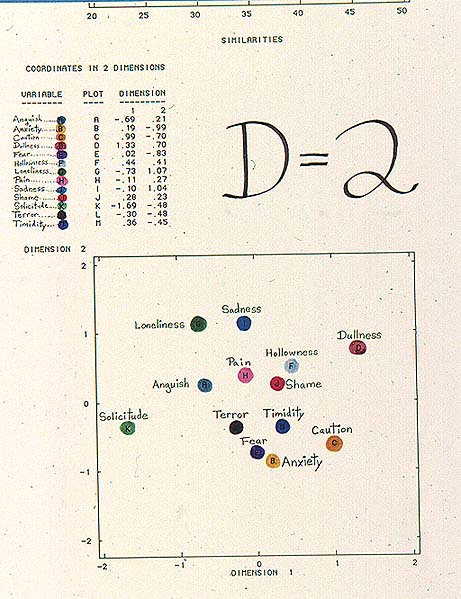 20 25 30 35 40 45 50
SIMILARITIES
COORDINATES IN 2 DIMENSIONS
VARIABLE PLOT DIMENSION
-------- ---- ---------
1 2
Anguish..... A A -.69 .21
Anxiety..... B B .19 -.99
Caution..... C C .99 -.70
Dullness..... D D 1.33 .70
Fear..... E E .02 -.83
Hollowness F F .44 .41
Loneliness.. G G -.73 1.07
Pain......... H H -.11 .27
Sadness.... I I -.10 1.04
Shame..... J J .28 .23
Solicitude.. K K -1.69 -.48
Terror...... L L -.30 -.48
Timidity... M M .36 -.45
D=2
DIMENSION 2
Sadness
Loneliness G I
Dullness
D
Hollowness
Pain F
H
Anguish A J Shame
Solicitude Terror Timidity
K M Caution
Fear C
E B Anxiety
1
0
-1
-2
-2 -1 0 1 2
DIMENSION 1